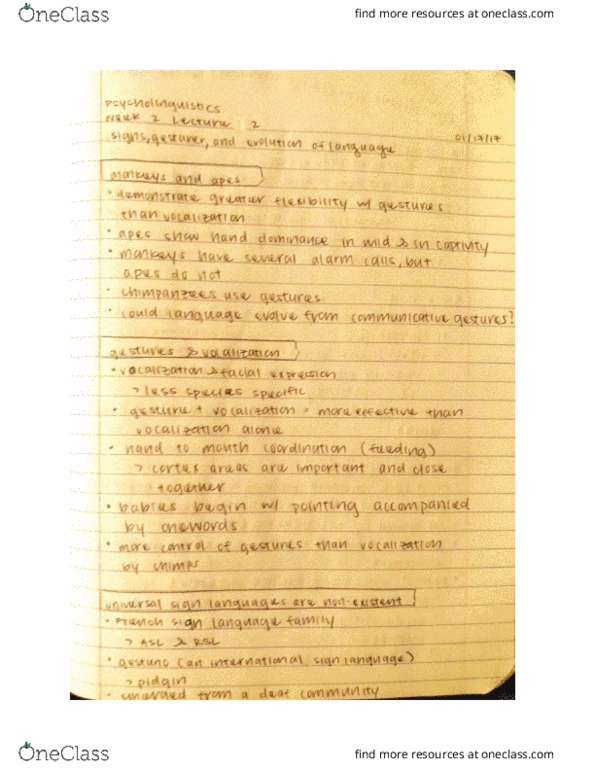 OneClass
find more resources at oneclass.com
Psycholinguistics
Week 2 Lecture 2
signs, gestures, and evolution of language
01/17/17
monkeys and apes
• demonstrate greater flexibility w/ gestures
than vocalization
• apes show hand dominance in wild & in captivity
• monkeys have several alarm calls, but
apes do not
• chimpanzees use gestures.
• could language evolve from communicative gestures?
gestures & vocalization
• vocalization & facial expression
> less species specific
• gesture + vocalization = more effective than
vocalization alone
• hand to mouth coordination (feeding)
> cortex areas are important and close
together
• babies begin w/ pointing accompanied
by onewords
• more control of gestures than vocalization
by chimps
universal sign languages are non-existent
• French sign language family
> ASL & RSL
• gestuno (an international sign language)
> pidgin
• emerged from a deaf community
OneClass
find more resources at oneclass.com